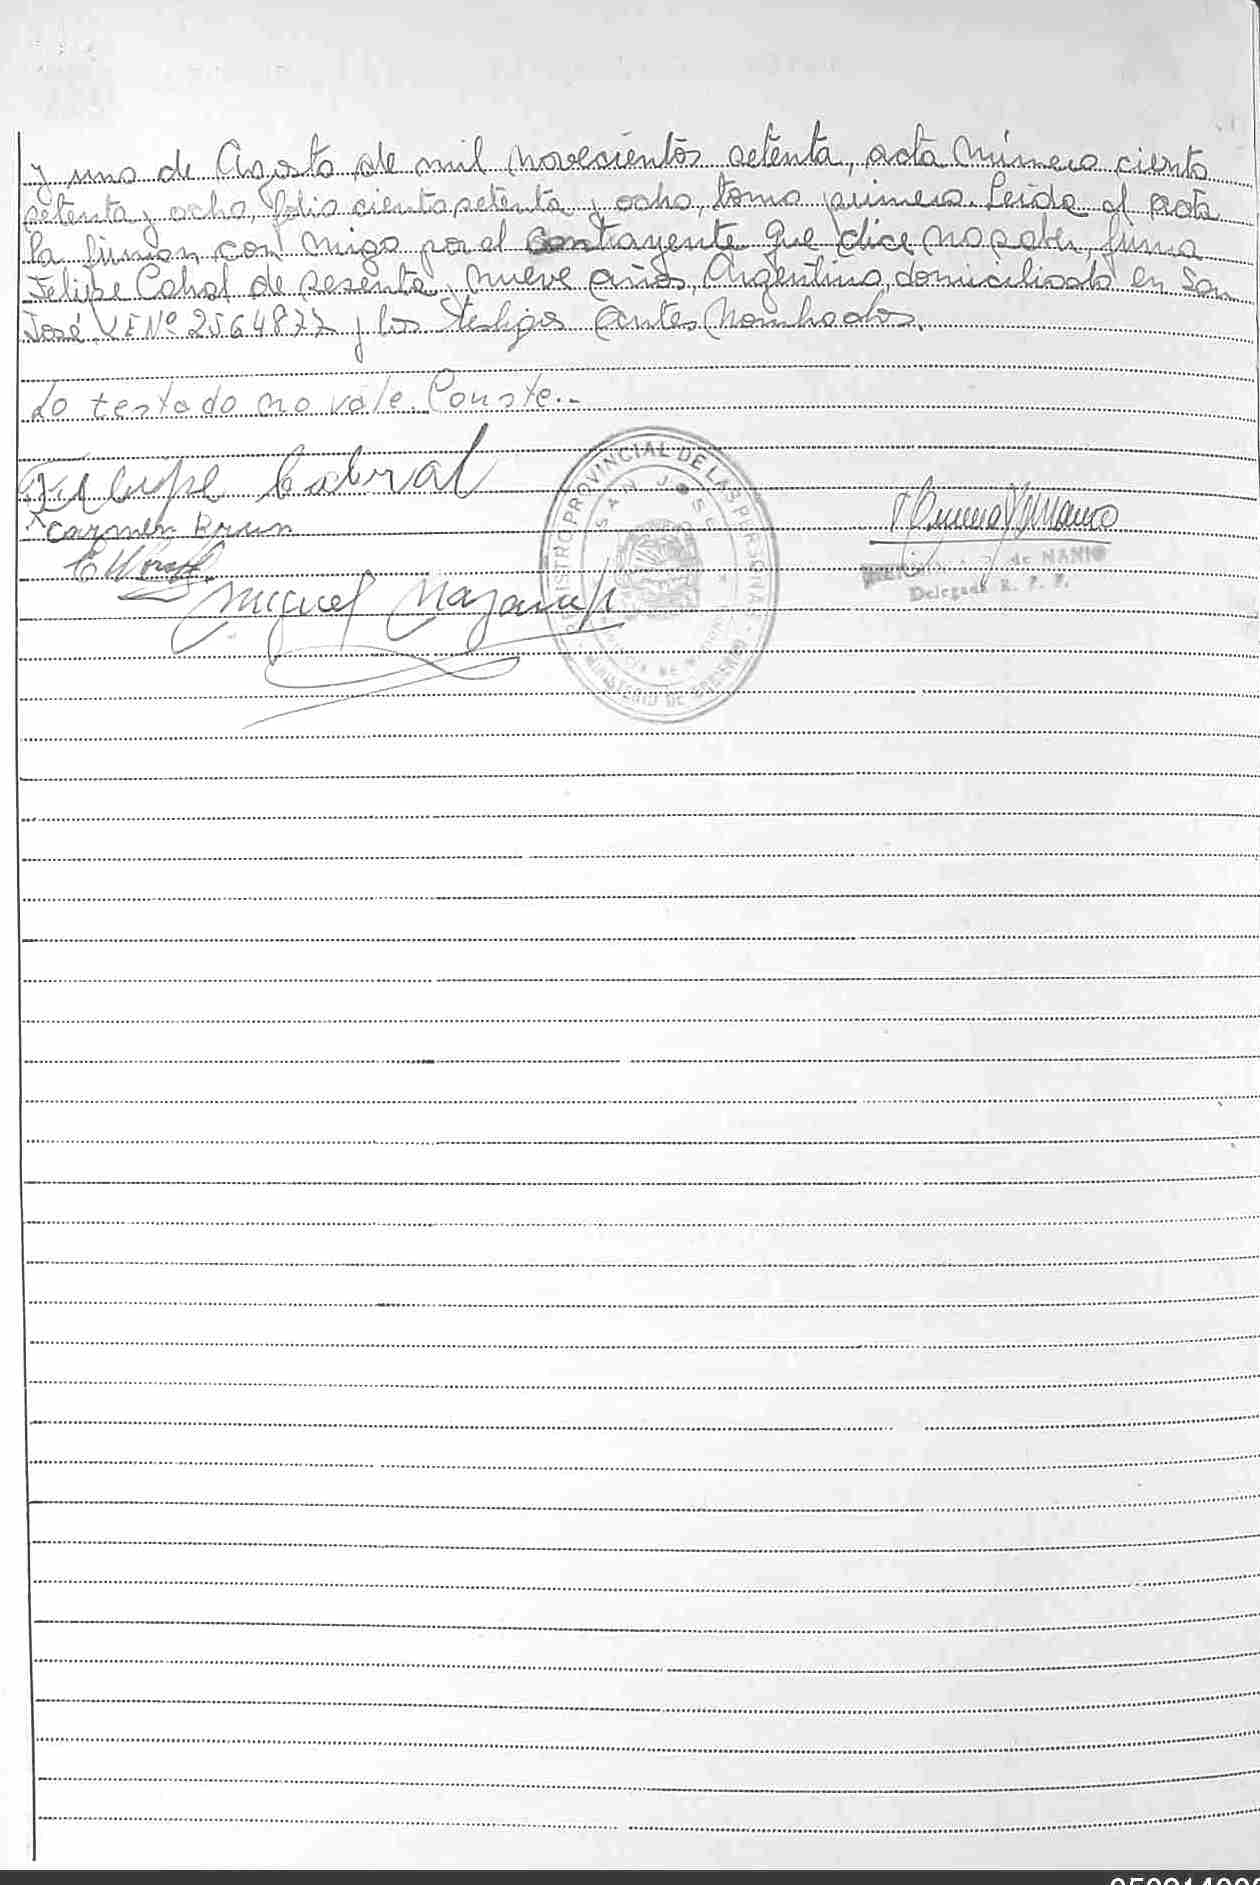 y uno de Agosto de mil novecientos setenta, acta número ciento
setenta y ocho, folio ciento setenta y ocho, tomo primero. Leida el acta
la firman con migo por el contrayente que dice no saber, firma
Felipe Cabral de sesenta y nueve años, Argentino, domiciliado en San
José LE Nº 2564877 y los testigos antes nombrados.
Lo testado no vale. Conste.-
Felipe Cabral
Carmen Brun
Miguel
REGISTRO PROVINCIAL DE LAS PERSONAS
SAN JOSE
MINISTERIO DE GOBIERNO
de NANIO
Delegada R. P. P.